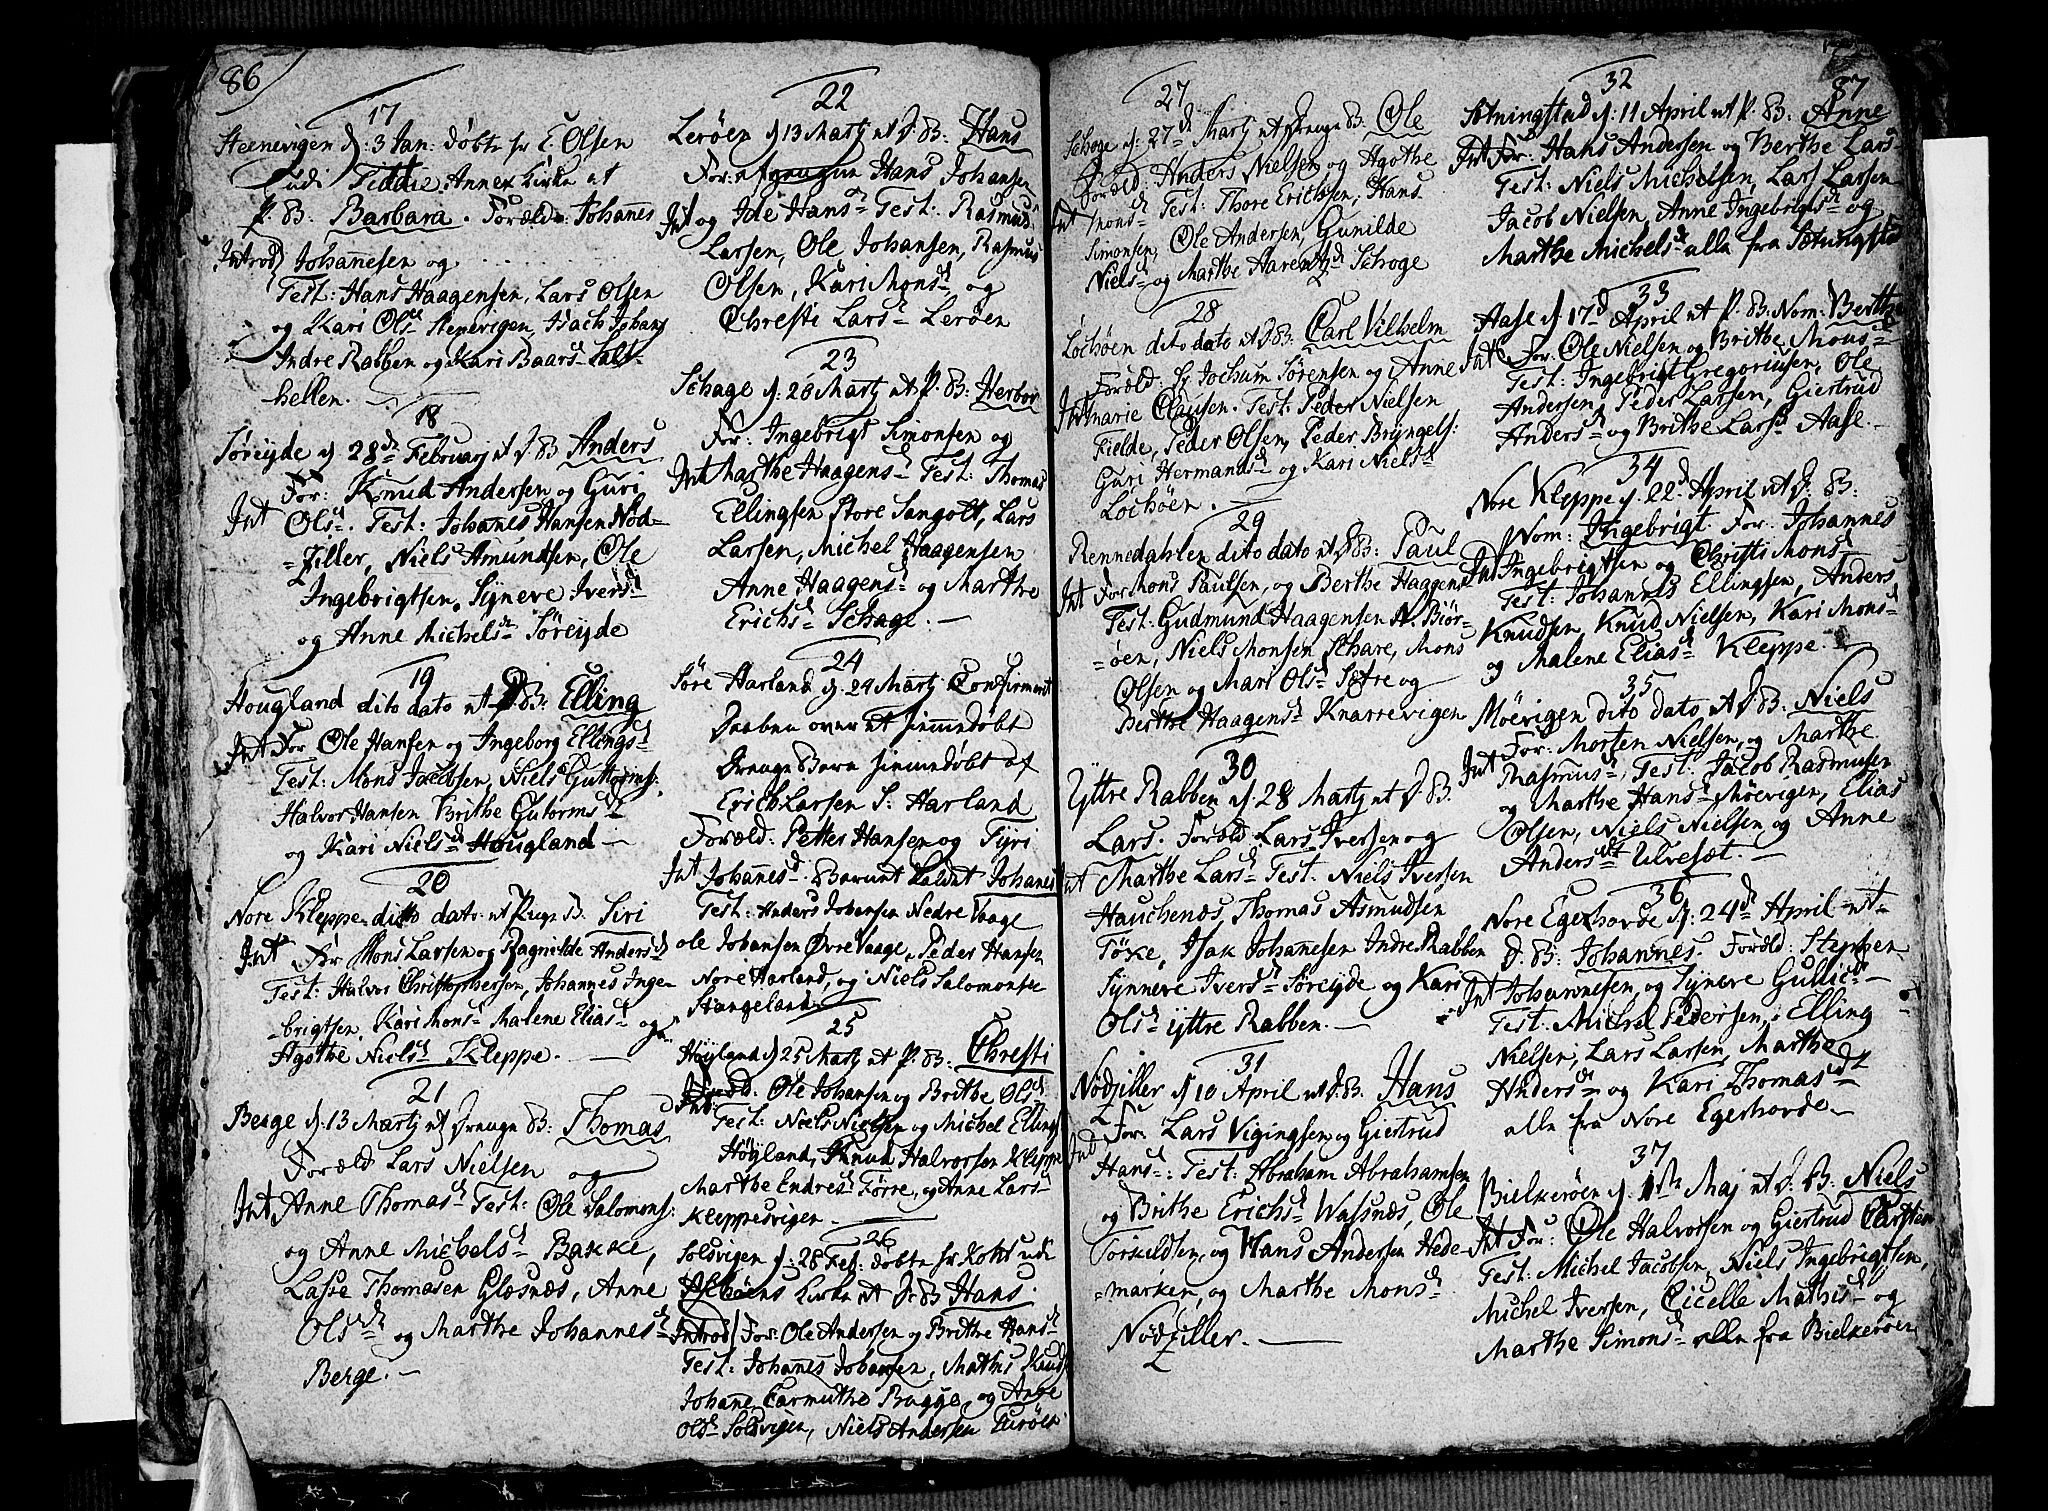 86
17
Steenevigen d: 3 Jan: døbt fr E. Olsen
udi Annex Kirke et
P. B. Barbara. Foræld: Johannes
Introd Johannesen og
Test: Hans Haagensen, Lars Olsen
og Kari Ols Stenevigen, Isach Johans
Indre Rabben og Kari Baars Salt-
hellen.
18
Søreyde d 28 Februarj et B. Anders
For: Knud Andersen og Guri
Int Ols. Test: Johanes Hansen Nød-
=ziller, Niels Amundsen, Ole
Ingebrigtsen, Signeve Ivers
og Anne Michels Søreyde
19
Hougland dito dato et B: Elling
Int For Ole Hansen og Ingeborg Ellings
Test: Mons Jacobsen, Niels Guttorms:
Halvor Hansen Brithe Gutorms
og Kari Niels Hougland
20
Nore Kleppe dito dato et B. Siri
Int For Mons Larsen og Ragnilde Anders
Test: Halvor Christophersen, Johannes Inge
brigtsen, Kari Mons Malene Elias og
Agothe Niels Kleppe.
21
Berge d 13 Martj et Drenge B: Thomas
Foræld Lars Nielsen og
Int Anne Thomas Test: Ole Salomons:
og Anne Michels Bakke,
Lasse Thomasen Glæsnæs, Anne
Ols og Marthe Johannes
Berge.
22
Lerøen d 13 Martj et B: Hans
For: Hans Johansen
Int og Ide Hans Test: Rasmus
Larsen, Ole Johansen, Rasmus
Olsen, Kari Mons og
Christi Lars Lerøen
23
Schage d: 20 Martj et P. B: Herbor
For: Ingebrigt Simonsen og
Int Marthe Haagens Test: Thomas
Ellingsen Store Sangolt, Lars
Larsen, Michel Haagensen
Anne Haagens og Marthe
Erichs Schage.
24
Søre Harland d. 24 Martj Confirmeret
Daaben over et hiemmedøbt
Drenge Barn hiemmedøbt af
Erich Larsen S: Harland
Foræld: Petter Hansen og Fyri
Int Johannes. Barnet kaldet Johanes
Test: Anders Johansen Nedre Vaage
ole Johansen Øvre Vaage, Peder Hansen
Nore Harland, og Niels Salomonsen
Stangeland.
25
Høyland d 25 Martj et P. B: Christi
Foræld. Ole Johansen og Brithe Ols
Int: Test: Niels Nielsen og Michel Ellings
Høyland, Knud Halvorsen Kleppe
Marthe Endres Førre, og Anne Lars
Kleppesvigen
26
Solsvigen d: 28 Feb: døbt fr udi
Kirke et B Hans
Introd For: Ole Andersen og Brithe Hans
Test: Johannes Johansen, Mathis Knuds
Johane Carmuthe Bugge, og Anne
Ols Solsvigen, Niels Andersen Turøen
27
Schoge d: 27 Martj et Drenge B. Ole
Foræld: Anders Nielsen og Agothe
Int Mons Test: Thore Erichsen, Hans
Simonsen, Ole Andersen, Gunilde
Niels og Marthe Schoge
28
Lochøen dito dato et B: Carl Vilhelm
Foræld: Sr Jochum Sørensen og Anne
Int marie Clausen. Test: Peder Nielsen
Fielde, Peder Olsen, Peder Bryngels:
Guri Hermands og Kari Niels
Lochøen.
29
Rennedahlen dito dato et B: Paul
Int For Mons Paulsen, og Berthe Haagens
Test: Gudmund Haagensen N. Biør-
=øen, Niels Monsen Schare, Mons
Olsen og Mari Ols Sætre og
Berthe Haagens Knarrevigen
30
Yttre Rabben d. 28 Martj et B.
Lars. Foræld Lars Iversen og
Int Marthe Lars Test: Niels Iversen
Hauchenæs, Thomas Asmudsen
Töke, Isak Johannesen Indre Rabben
Synneve Ivers Søreyde og Kari
Ols yttre Rabben.
31
Nødziller d 10 April et B. Hans
For: Lars Vigingsen og Giertrud
Int Hans: Test: Abraham Abrahamsen
og Brithe Erichs Wasnæs, Ole
Torkildsen, og Hans Andersen Hede-
=marken, og Marthe Mons
Nødziller.
32
87
d: 11 April et P. B: Anne
Int For: Hans Andersen og Berthe Lars
Test: Niels Michelsen, Lars Larsen
Jacob Nielsen, Anne Ingebrigts og
Marthe Michels alle fra
33
Aase d 17 April et P. B: Nom: Berthe
Int For: Ole Nielsen og Brithe Mons
Test: Ingebrigt Gregoriusen, Ole
Andersen, Peder Larsen, Giertrud
Anders og Brithe Lars Aase.
34
Nore Kleppe d. 22 April et B:
Nom: Ingebrigt. For: Johannes
Int Ingebrigtsen og Christi Mons
Test: Johannes Ellingsen, Anders
Knudsen, Knud Nielsen, Kari Mons
og Malene Elias Kleppe.
35
Møevigen dito dato et B. Niels
For: Morten Nielsen, og Marthe
Int Rasmus, Test: Jacob Rasmusen
og Marthe Hans Møevigen, Elias
Olsen, Niels Nielsen og Anne
Anders Ulveset.
36
Nore Egerhovde d: 24 April et
B: Johannes. Foræld: Stephen
Int Johannesen, og Synere Gullic
Test: Michel Pedersen, Elling
Nielsen, Lars Larsen, Marthe
Anders og Kari Thomas
alle fra Nore Egerhovde
37
Bielkerøen d. 1 Maj et B: Niels
Int For: Ole Halvorsen og Giertrud Carsten
Test: Michel Jacobsen, Niels Ingebrigtsen,
Michel Iversen, Cicelle Mathis og
Marthe Simons alle fra Bielkerøen